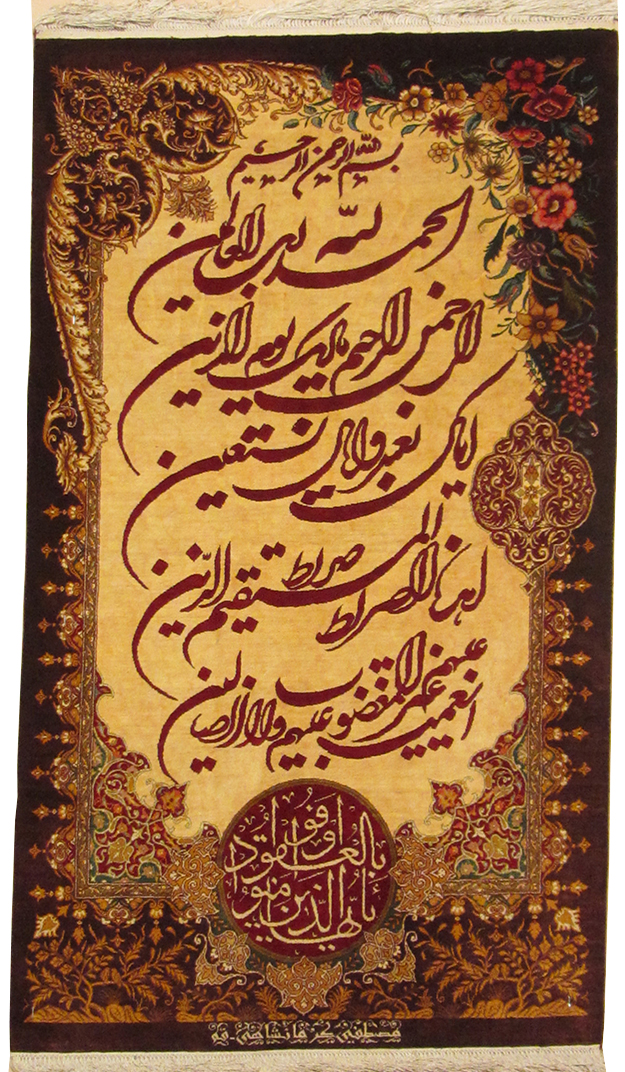 بسم الله الرحمن الرحیم
الحمد لله رب العالمین
الرحمن الرحیم مالک یوم الدین
ایاک نعبد وایاک نستعین
اهدنا الصراط المستقیم صراط الذین
انعمت علیهم غیر المغضوب علیهم ولا الضالین
یا ایها الذین آمنوا
اوفوا بالعقود
مصطفی کرمانشاهی - قم